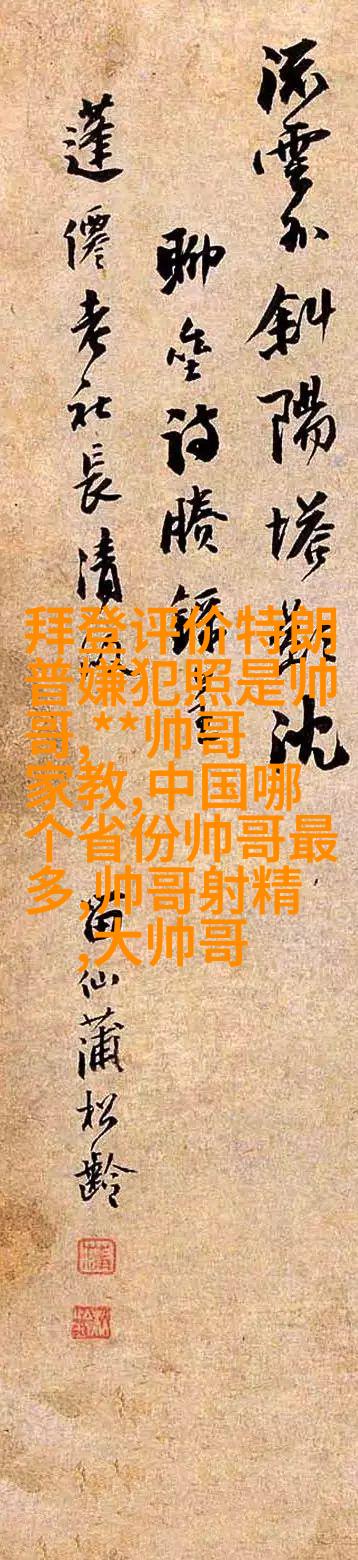 流雲外斜陽塔沈
聊詩賸
蓬僊老社長清
留仙蒲松齡
拜登评价特朗
普嫌犯照是帅
哥,**帅哥
家教,中国哪
个省份帅哥最
多,帅哥射精
,大帅哥